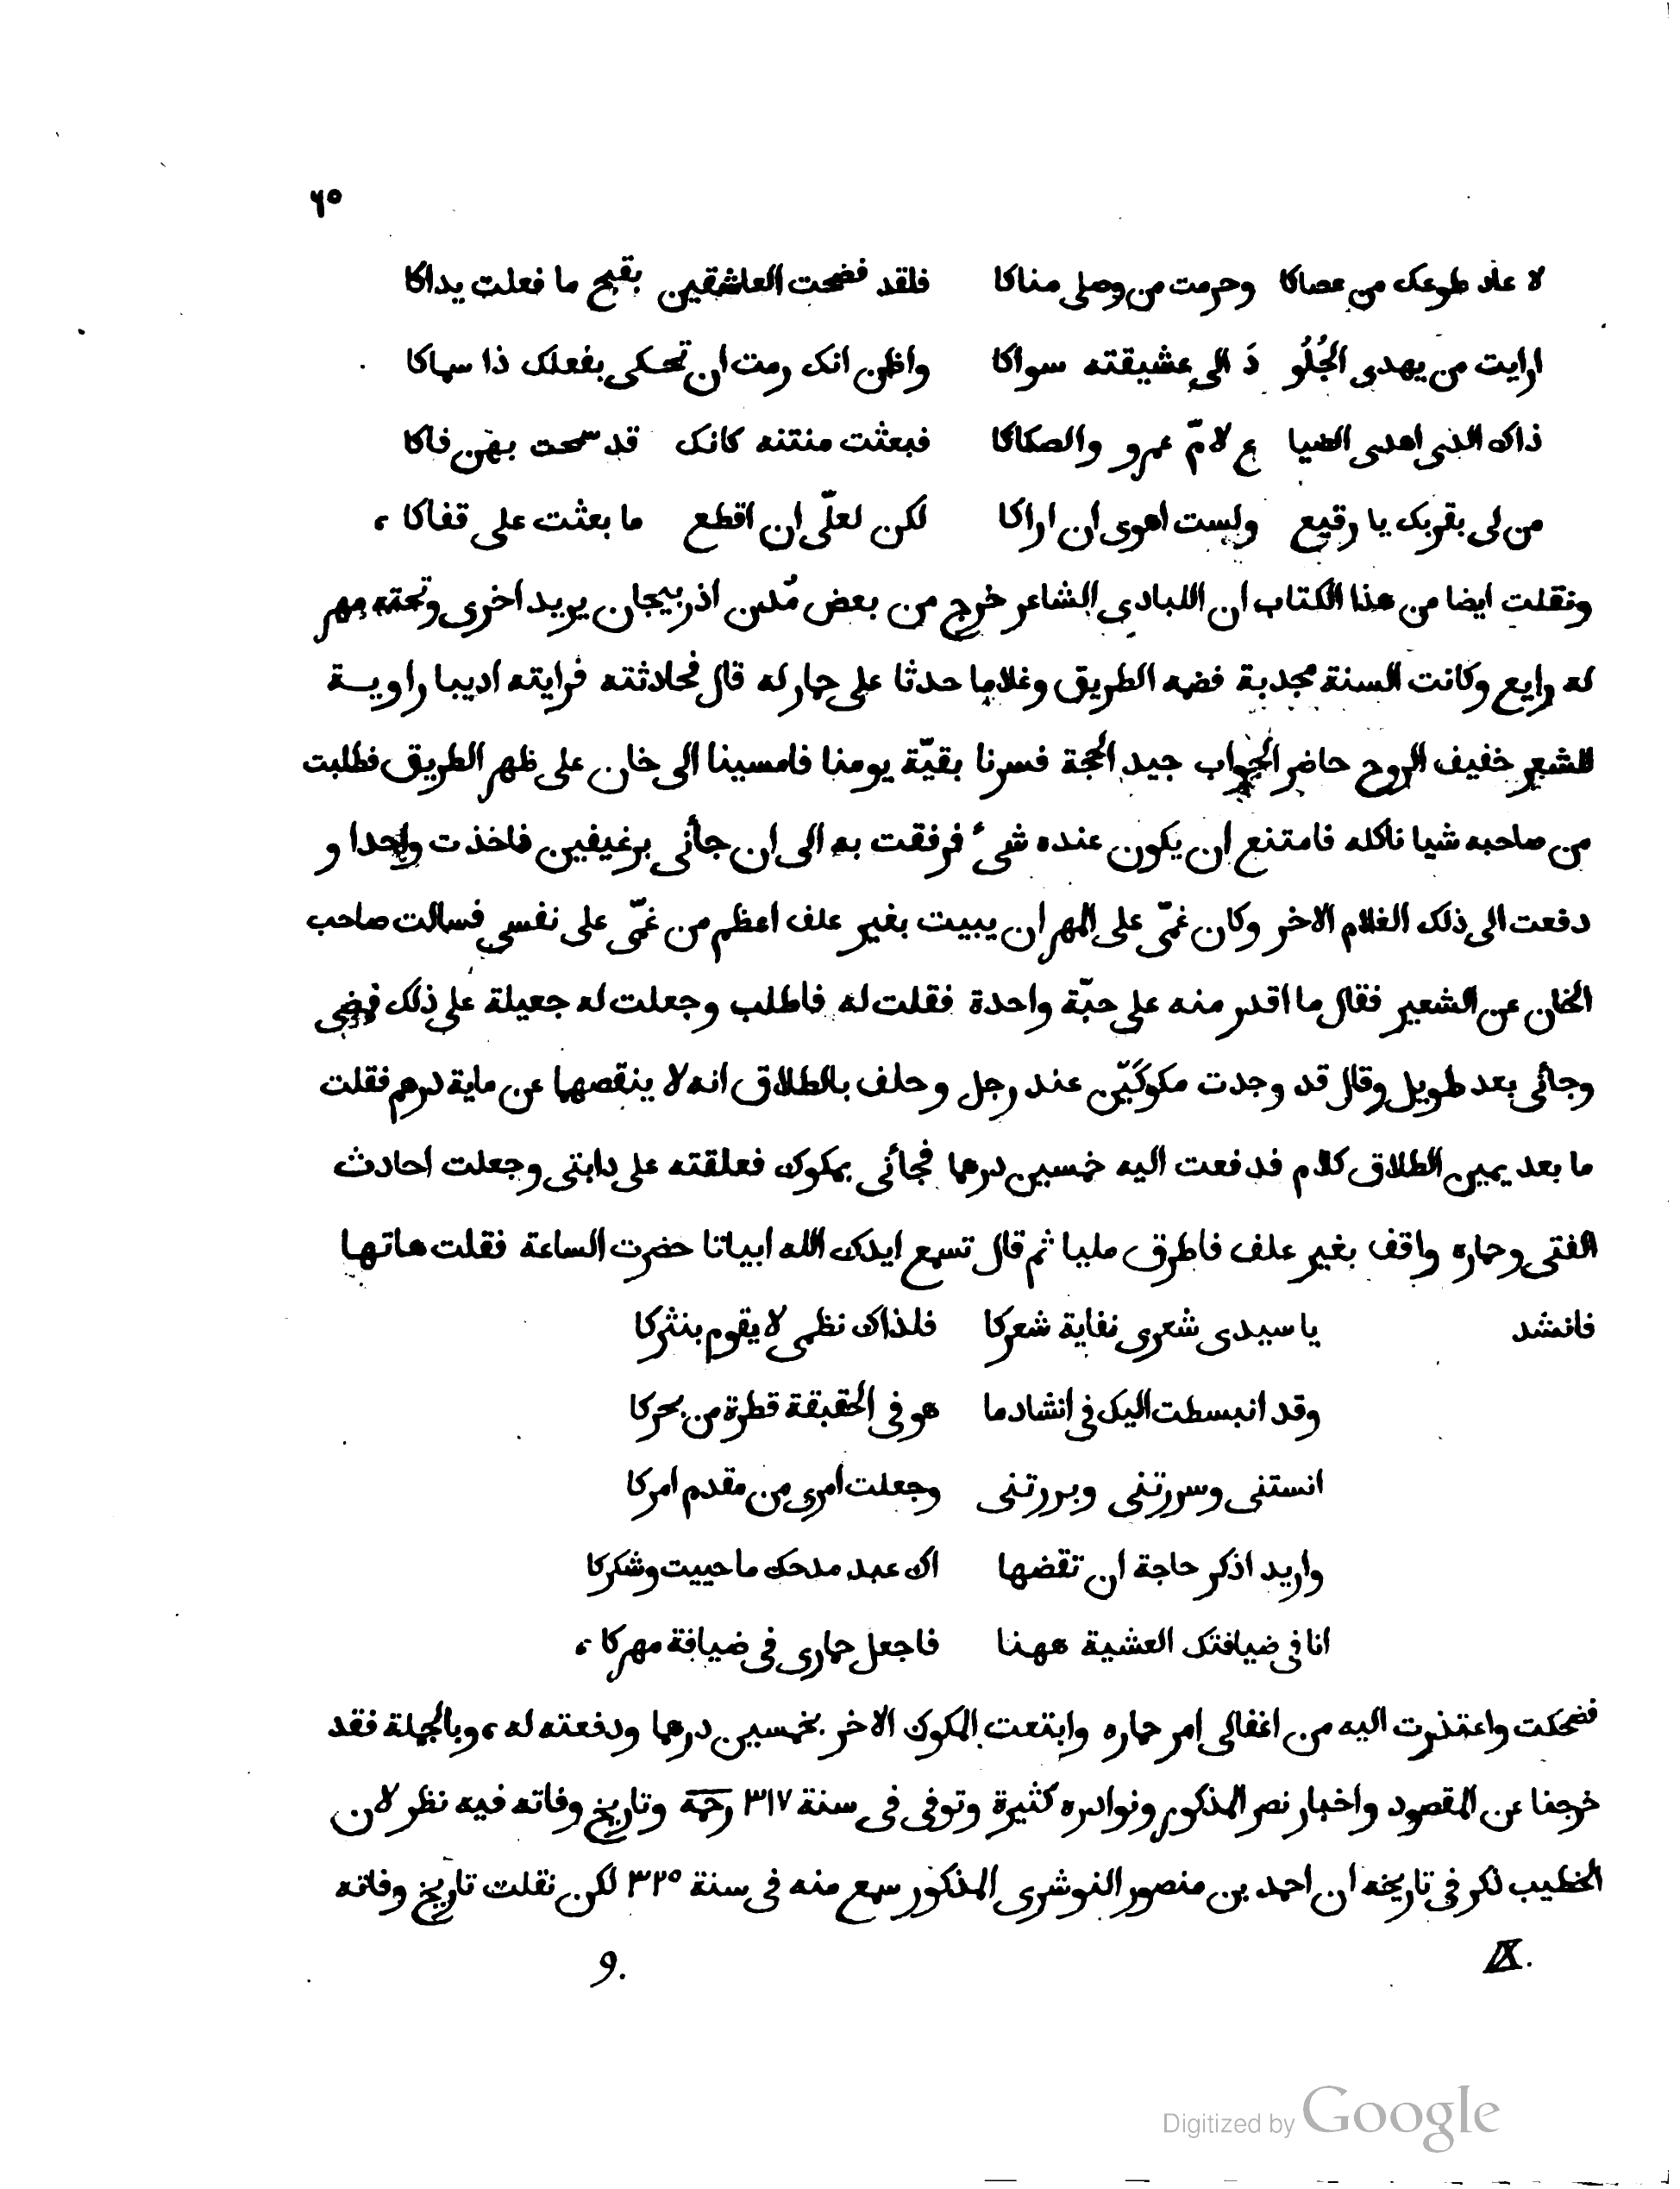 ٦٥
لا عاد طوعك من عصاكا وحرمت من وصلى مناكا فلقد فضحت العاشقين بقبح ما فعلت يداكا
ارايت من يهدى الجُلُو دَ الى عشيقته سواكا واظن انك رمت ان تحكى بفعلك ذا سماكا
ذاك الذى اهدى الضيا ع لامّ عمرو والصكاكا فبعثت منتنه كانك قد سمحت بهن فاكا
من لى بقربك يا رقيع ولست اهوى ان اراكا لكن لعلّى ان اقطع ما بعثت على قفاكا ،
ونقلت ايضا من هذا الكتاب ان اللبادى الشاعر خرج من بعض مُدن اذربيجان يريد اخرى وتحته مهر
له رايع وكانت السنة مجدبة فضمه الطريق وغلاما حدثا على حمار له قال فحادثته فرايته اديبا راويــة
للشعر خفيف الروح حاضر الجواب جيد الحجة فسرنا بقيّة يومنا فامسينا الى خان على ظهر الطريق فطلبت
من صاحبه شيا ناكله فامتنع ان يكون عنده شىء فرفقت به الى ان جأنى برغيفين فاخذت واحدا و
دفعت الى ذلك الغلام الاخر وكان غمّى على المهر ان يبيت بغير علف اعظم من غمّى على نفسى فسالت صاحب
الخان عن الشعير فقال ما اقدر منه على حبّة واحدة فقلت له فاطلب وجعلت له جعيلة على ذلك فمضى
وجأنى بعد طويل وقال قد وجدت مكوكَيّن عند رجل وحلف بالطلاق انه لا ينقصهما عن ماية درهم فقلت
ما بعد يمين الطلاق كلام فدفعت اليه خمسين درهما فجأنى بمكوك فعلقته على دابتى وجعلت احادث
الفتى وحماره واقف بغير علف فاطرق مليا ثم قال تسمع ايدك الله ابياتا حضرت الساعة فقلت هاتها
فانشد يا سيدى شعرى نفاية شعركا فلذاك نظمى لا يقوم بنثركا
وقد انبسطت اليك فى انشاد ما هو فى الحقيقة قطرة من بحركا
انستنى وسررتنى وبررتنى وجعلت امرى من مقدم امركا
واريد اذكر حاجة ان تقضها اك عبد مدحك ما حييت وشكركا
انا فى ضيافتك العشية ههنا فاجعل حمارى فى ضيافة مهركا ،
فضحكت واعتذرت اليه من اغفالى امر حماره وابتعت المكوك الاخر بخمسين درهما ودفعته له ، وبالجملة فقد
خرجنا عن المقصود واخبار نصر المذكور ونوادره كثيرة وتوفى فى سنة ٣١٧ رحمه وتاريخ وفاته فيه نظر لان
الخطيب ذكر فى تاريخه ان احمد بن منصور النوشرى المذكور سمع منه فى سنة ٣٢٥ لكن نقلت تاريخ وفاته
IX. 9.
Digitized by Google